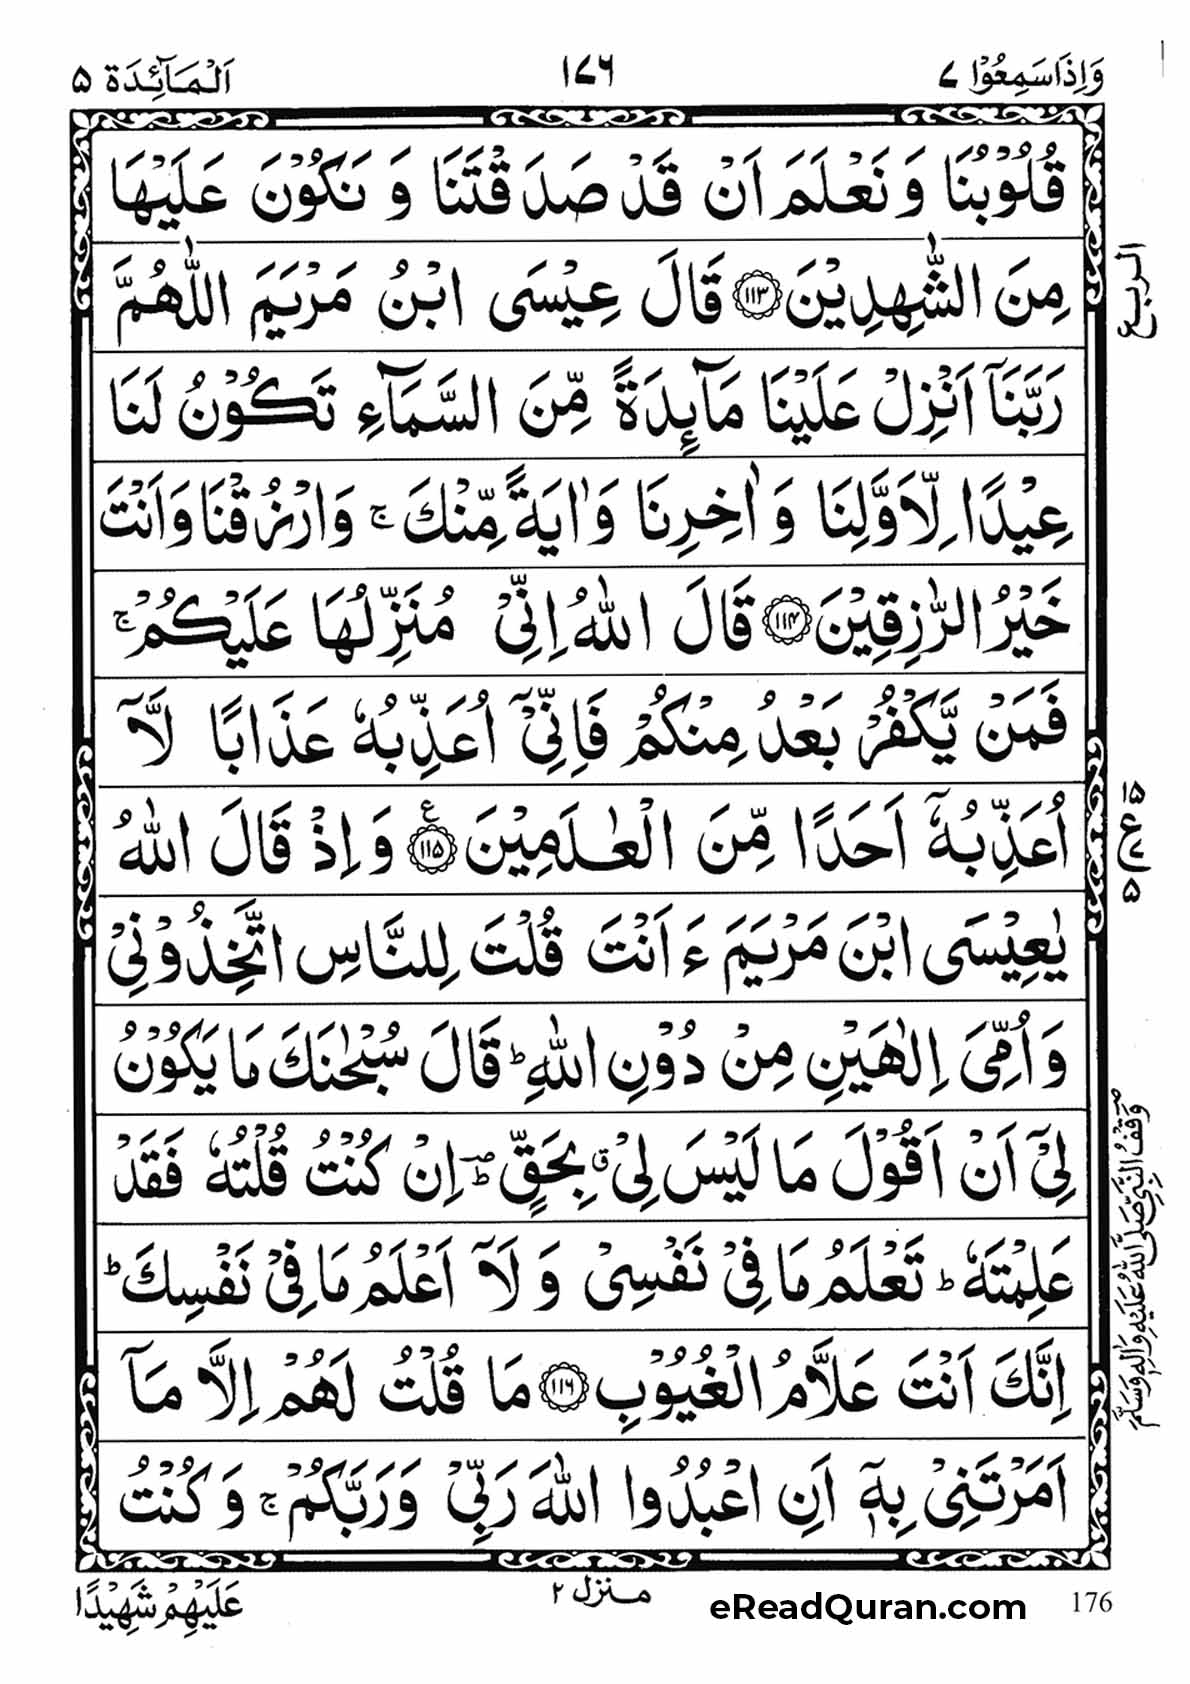 وَاِذَا سَمِعُوْا ۷
۱۷۶
اَلْمَآئِدَة ۵
قُلُوْبُنَا وَ نَعْلَمَ اَنْ قَدْ صَدَقْتَنَا وَ نَكُوْنَ عَلَيْهَا
مِنَ الشّٰهِدِيْنَ ۝۱۱۳ قَالَ عِيْسَى ابْنُ مَرْيَمَ اللّٰهُمَّ
الربع
رَبَّنَاۤ اَنْزِلْ عَلَيْنَا مَآئِدَةً مِّنَ السَّمَآءِ تَكُوْنُ لَنَا
عِيْدًا لِّاَوَّلِنَا وَ اٰخِرِنَا وَ اٰيَةً مِّنْكَ ۚ وَ ارْزُقْنَا وَ اَنْتَ
خَيْرُ الرّٰزِقِيْنَ ۝۱۱۴ قَالَ اللّٰهُ اِنِّيْ مُنَزِّلُهَا عَلَيْكُمْ ۚ
فَمَنْ يَّكْفُرْ بَعْدُ مِنْكُمْ فَاِنِّيْۤ اُعَذِّبُهٗ عَذَابًا لَّاۤ
اُعَذِّبُهٗۤ اَحَدًا مِّنَ الْعٰلَمِيْنَ ۝۱۱۵ ع وَ اِذْ قَالَ اللّٰهُ
۱۵
ع
۵
يٰعِيْسَى ابْنَ مَرْيَمَ ءَ اَنْتَ قُلْتَ لِلنَّاسِ اتَّخِذُوْنِيْ
وَ اُمِّيَ اِلٰهَيْنِ مِنْ دُوْنِ اللّٰهِ ؕ قَالَ سُبْحٰنَكَ مَا يَكُوْنُ
لِيْۤ اَنْ اَقُوْلَ مَا لَيْسَ لِيْ ۗ بِحَقٍّ ؕ اِنْ كُنْتُ قُلْتُهٗ فَقَدْ
وَقْفُ النَّبِيِّ صَلَّى اللّٰهُ عَلَيْهِ وَاٰلِهٖ وَسَلَّمَ
عَلِمْتَهٗ ؕ تَعْلَمُ مَا فِيْ نَفْسِيْ وَ لَاۤ اَعْلَمُ مَا فِيْ نَفْسِكَ ؕ
اِنَّكَ اَنْتَ عَلَّامُ الْغُيُوْبِ ۝۱۱۶ مَا قُلْتُ لَهُمْ اِلَّا مَاۤ
اَمَرْتَنِيْ بِهٖۤ اَنِ اعْبُدُوا اللّٰهَ رَبِّيْ وَ رَبَّكُمْ ۚ وَ كُنْتُ
عَلَيْهِمْ شَهِيْدًا
منزل ۲
eReadQuran.com
176